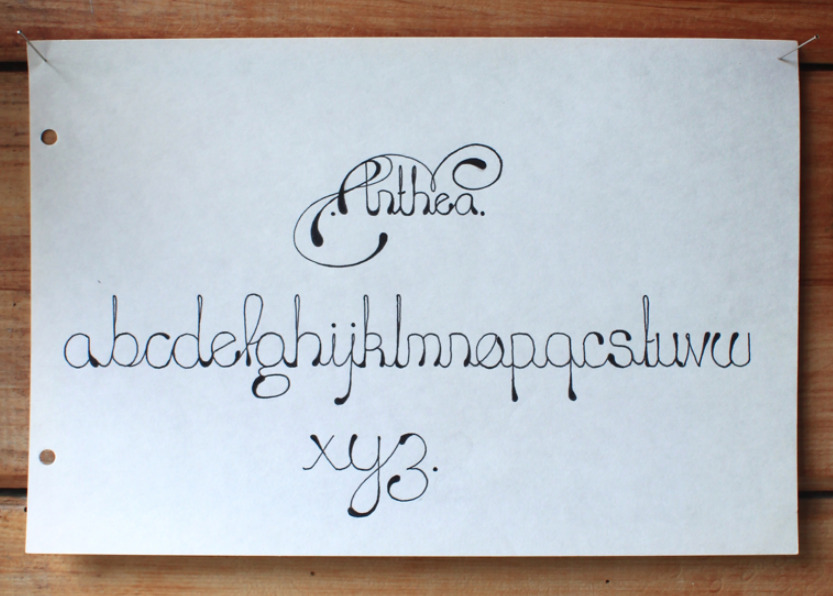 .Anthea.
abcdefghijklmnopqrstuvw
xyz.